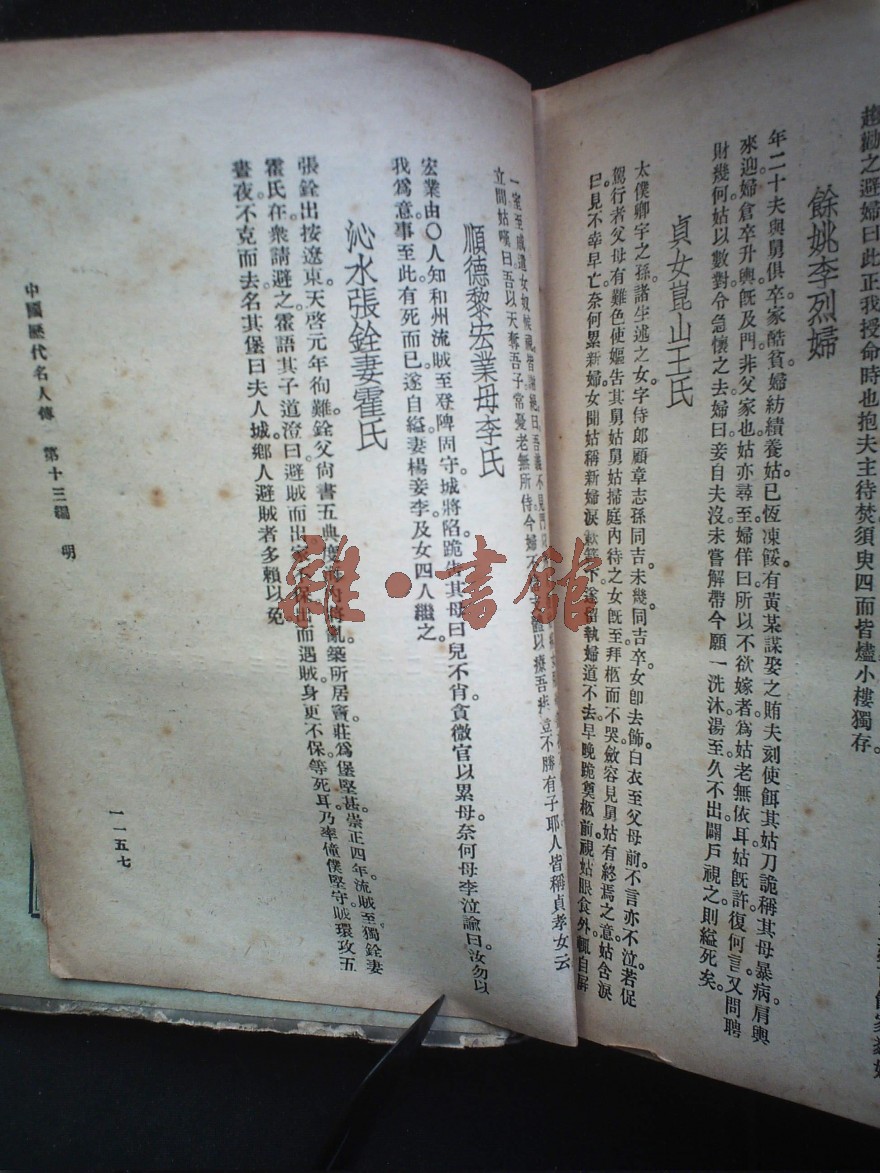 趨勸之避婦曰此正我授命時也抱夫主待焚須臾四面皆燼小樓獨存。
餘姚李烈婦
年二十夫與舅俱卒家酷貧婦紡績養姑。已恆凍餒。有黃某謀娶之賄夫刻使餌其姑刀詭稱其母暴病。肩輿
來迎婦倉卒升輿。旣及門非父家也姑亦尋至。婦佯曰所以不欲嫁者爲姑老無依耳姑旣許復何言又問聘
財幾何姑以數對令急懷之去。婦曰妾自夫沒未嘗解帶今願一洗沐湯至久不出闢戶視之則縊死矣。
貞女崑山王氏
太僕卿宇之孫諸生述之女字侍郎顧章志孫同吉。未幾同吉卒女卽去飾白衣至父母前不言亦不泣若促
駕行者父母有難色使嫗告其舅姑。舅姑掃庭內待之女旣至拜柩而不哭斂容見舅姑有終焉之意姑含淚
曰見不幸早亡奈何累新婦女聞姑稱新婦淚下遂留執婦道不去。早晚跪奠柩前視姑眼食外輒自屏
一室至戚遣女奴候視皆謝絕曰吾義不見門
立間姑嘆曰吾以天奪吾子常憂老無所侍。今婦不以療吾豈不勝有子耶人皆稱貞孝女云
順德黎宏業母李氏
宏業由〇人知和州流賊至登陴固守城將陷跪告其母曰兒不肖貪微官以累母奈何母李泣諭曰汝勿以
我爲意事至此有死而已遂自縊妻楊妾李及女四人繼之。
沁水張銓妻霍氏
張銓出按遼東天啓元年徇難銓父尙書五典度海內將亂築所居竇莊爲堡堅甚。崇正四年流賊至獨銓妻
霍氏在衆請避之霍語其子道澄曰避賊而出家不保出而遇賊身更不保等死耳乃率僮僕堅守賊環攻五
晝夜不克而去名其堡曰夫人城鄉人避賊者多賴以免
中國歷代名人傳 第十三編 明
一一五七
雜·書館